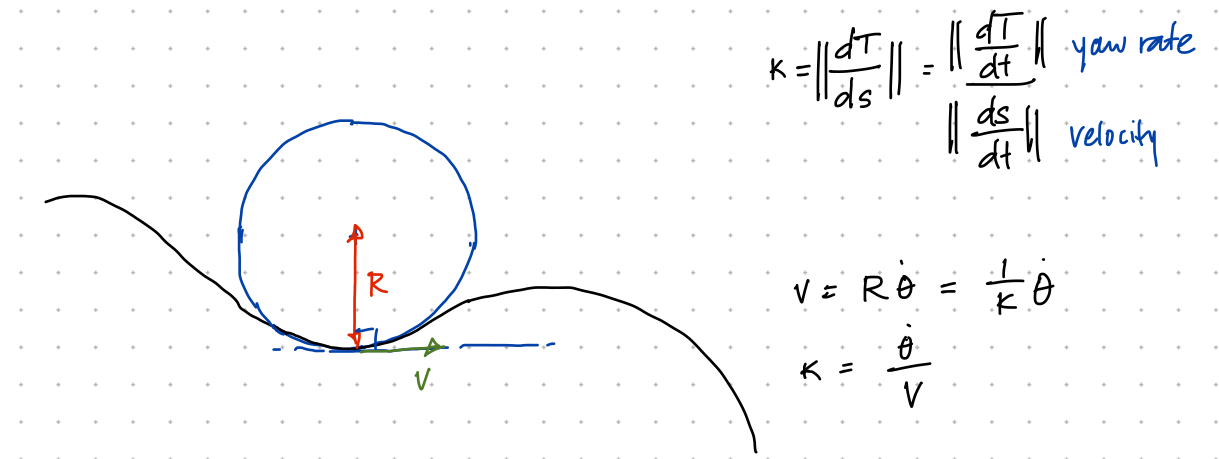 κ = ‖dT/ds‖ = ‖dT/dt‖ / ‖ds/dt‖
yaw rate
velocity
R
V
V = Rθ̇ = 1/κ θ̇
κ = θ̇/V